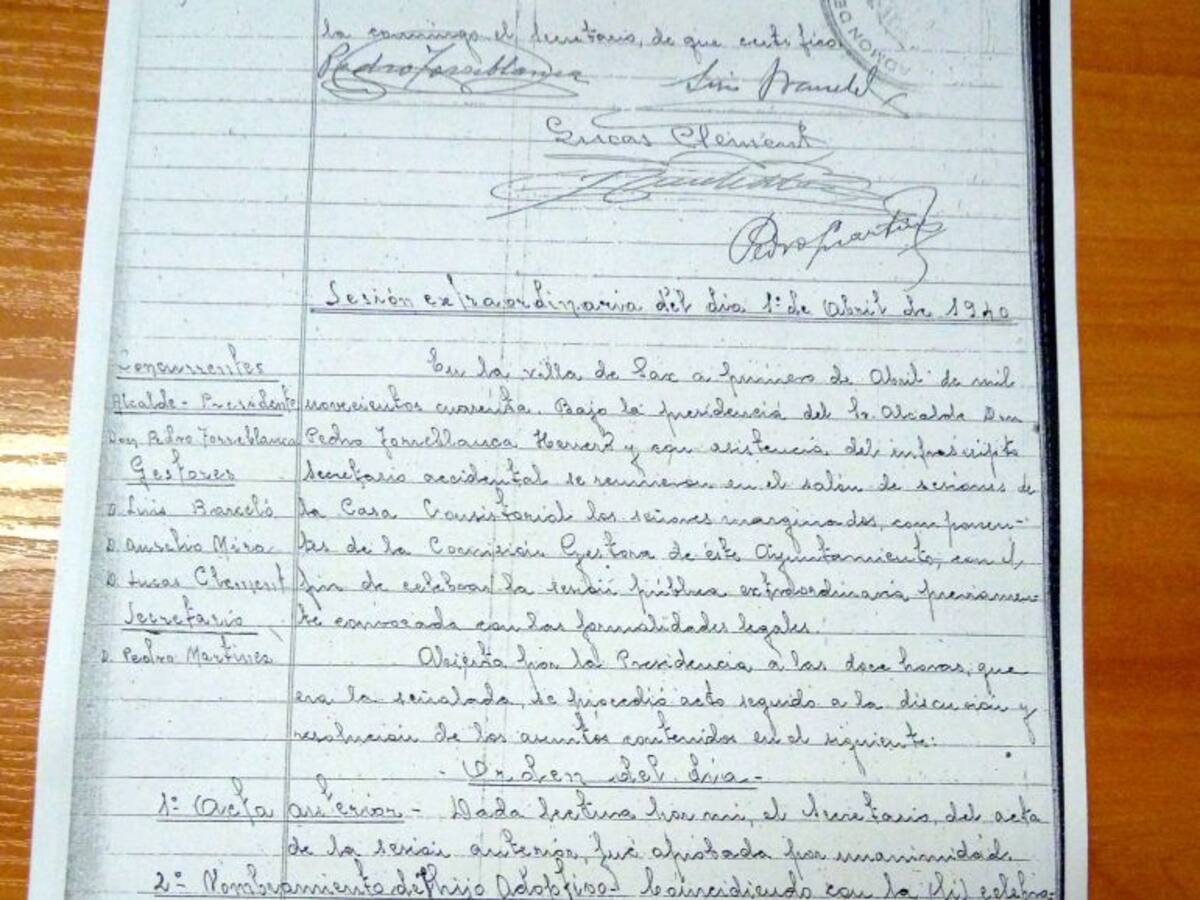 la conmigo el Secretario, de que certifico.
ADMON DE
Pedro Torreblanca
Luis Barceló
Lucas Clement
Pedro Martínez
Sesión extraordinaria del día 1º de Abril de 1940
Concurrentes
Alcalde-Presidente
Don Pedro Torreblanca
Gestores
D. Luis Barceló
D. Aurelio Mira
D. Lucas Clement
Secretario
D. Pedro Martínez
En la villa de Sax a primero de Abril de mil
novecientos cuarenta. Bajo la presidencia del Sr. Alcalde Don
Pedro Torreblanca Herrero y con asistencia del infrascripto
secretario accidental se reunieron en el salón de sesiones de
la Casa Consistorial los señores marginados, componen-
tes de la Comisión Gestora de éste Ayuntamiento, con el
fin de celebrar la sesión pública extraordinaria previamen-
te convocada con las formalidades legales.
Abierta por la Presidencia a las doce horas, que
era la señalada, se procedió acto seguido a la discusión y
resolución de los asuntos contenidos en el siguiente:
- Orden del día -
1º Acta anterior - Dada lectura por mi, el Secretario, del acta
de la sesión anterior, fué aprobada por unanimidad.
2º Nombramiento de hijo Adoptivo - Coincidiendo con la celebra-